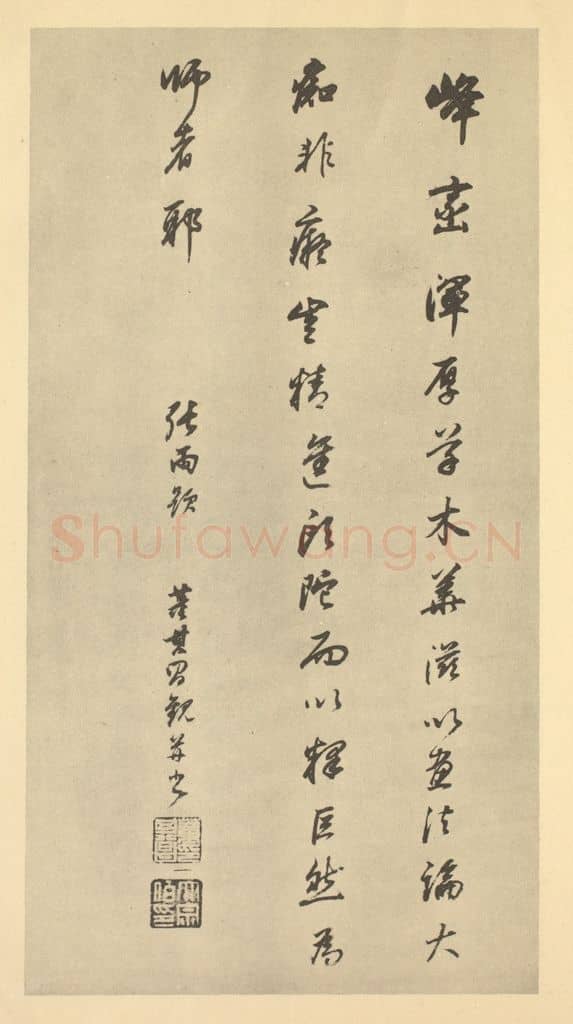 峰巒渾厚草木華滋以畫法論大
痴非癡豈精進頭陀而以釋巨然為
師者耶
張雨題
董其昌觀并書
Shufawang.CN